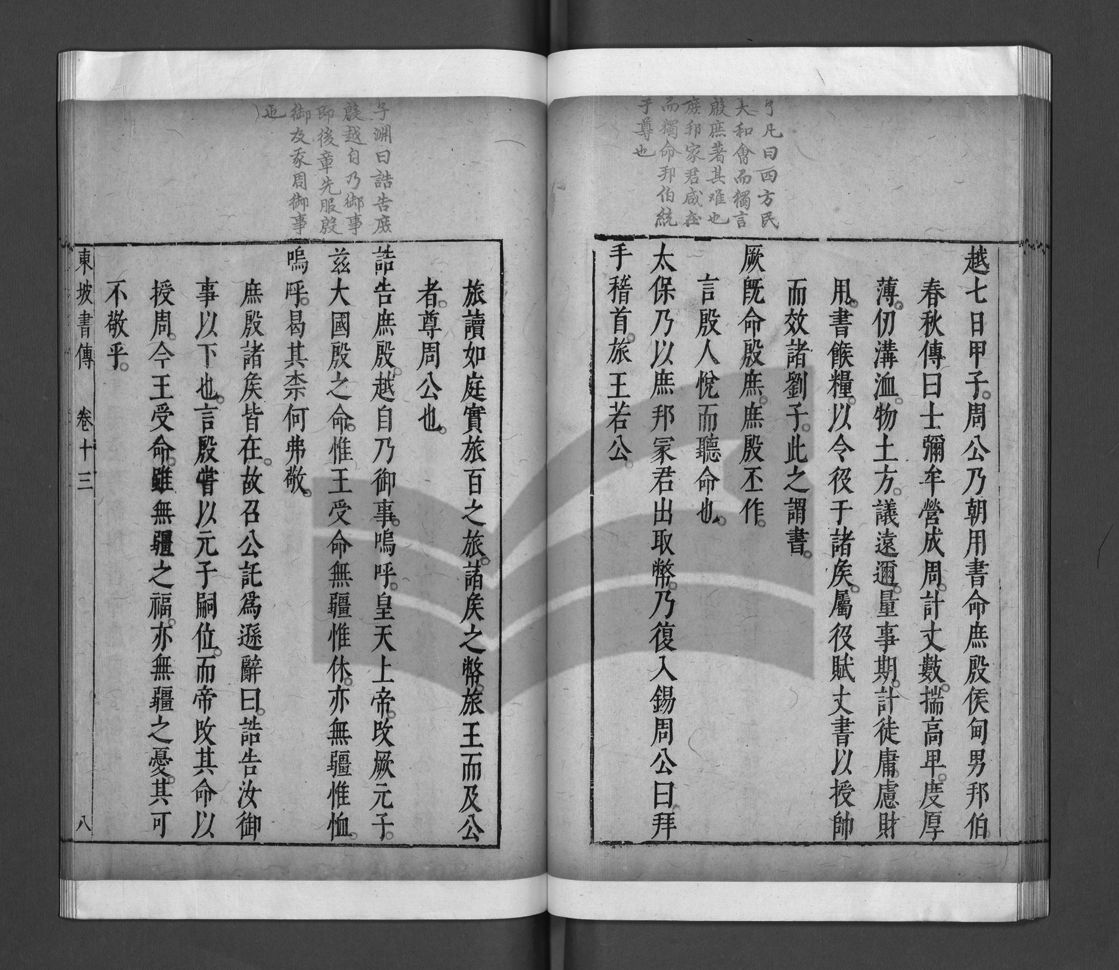 了凡曰四方民
大和會而獨言
殷庶著其难也
庶邦家君咸在
而獨命邦伯統
于尊也
越七日甲子。周公乃朝用書命庶殷侯甸男邦伯。
春秋傳曰士彌牟營成周。計丈數。揣高卑。度厚
薄。仞溝洫。物土方。議遠邇。量事期。計徒庸。慮財
用。書餱糧。以令役于諸矦。屬役賦丈書以授帥
而效諸劉子。此之謂書。
厥旣命殷庶。庶殷丕作。
言殷人悅而聽命也。
太保乃以庶邦冢君出取幣。乃復入錫周公曰。拜
手稽首。旅王若公。
子淵曰誥告庶
殷越自乃御事
即後章先服殷
御友家周御事
也
旅讀如庭實旅百之旅。諸矦之幣。旅王而及公
者。尊周公也。
誥告庶殷。越自乃御事。嗚呼。皇天上帝。改厥元子。
茲大國殷之命。惟王受命無疆惟休。亦無疆惟恤。
嗚呼。曷其柰何弗敬。
庶殷諸矦皆在。故召公託爲遜辭曰。誥告汝御
事以下也。言殷嘗以元子嗣位。而帝改其命以
授周。今王受命。雖無疆之福。亦無疆之憂。其可
不敬乎。
東坡書傳 卷十三 八